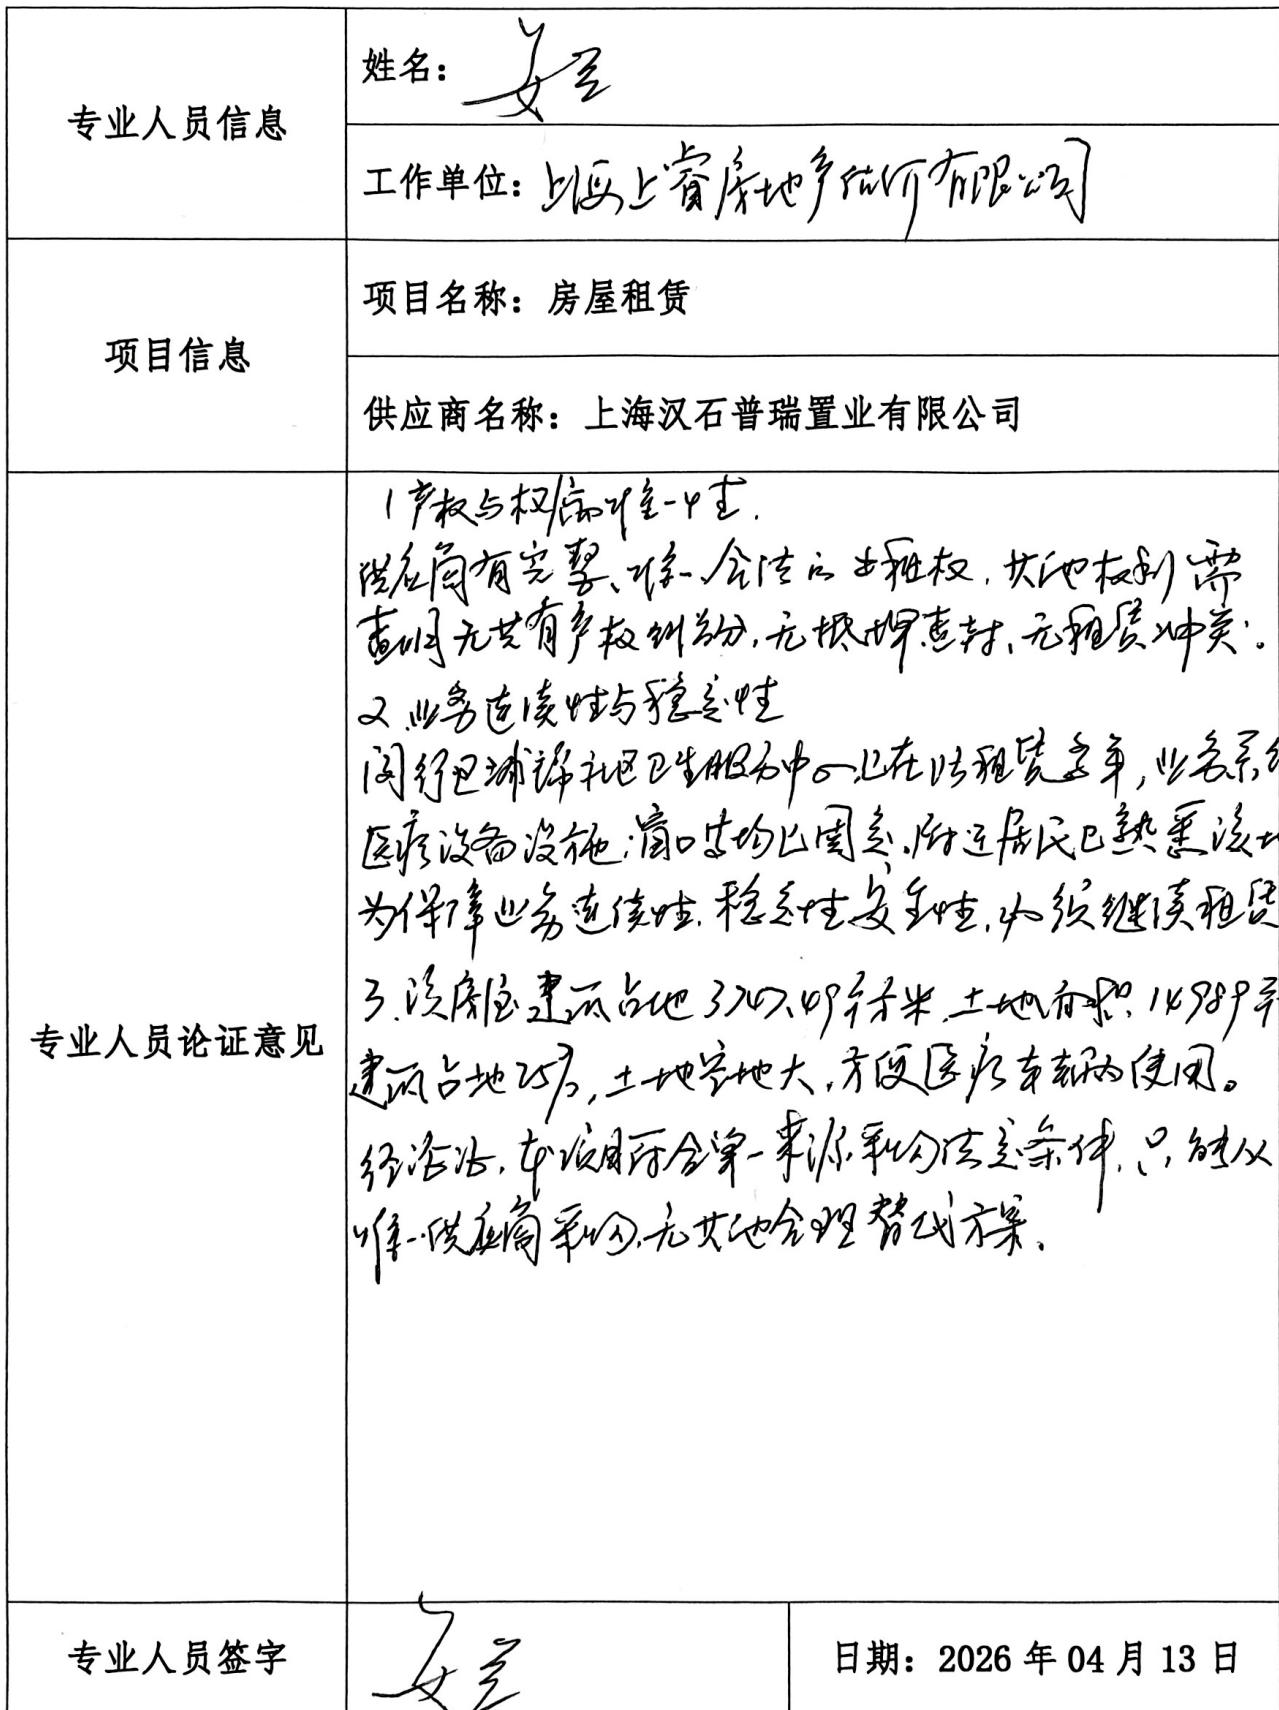 专业人员信息
姓名：姜兰
工作单位：上海上睿房地产估价有限公司
项目信息
项目名称：房屋租赁
供应商名称：上海汉石普瑞置业有限公司
专业人员论证意见
1产权与权属唯一性.
供应商有完整、唯一、合法的出租权，其他权利需
查明无共有产权纠纷，无抵押查封、无租赁冲突。
2.业务连续性与稳定性
闵行区浦锦社区卫生服务中心已在此租赁多年，业务系统
医疗设备设施，窗口等均已固定，附近居民已熟悉该地
为保障业务连续性.稳定性安全性，必须继续租赁
3.该房屋建筑占地3747.49平方米，土地面积14989平
建筑占地25%，土地空地大，方便医疗车辆使用。
经论证，本项目符合单一来源采购法定条件，只能从
唯一供应商采购，无其他合理替代方案、
专业人员签字
姜兰
日期：2026年04月13日